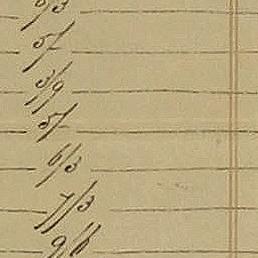 5/3
5/-
3/9
5/-
6/3
7/3
9/6